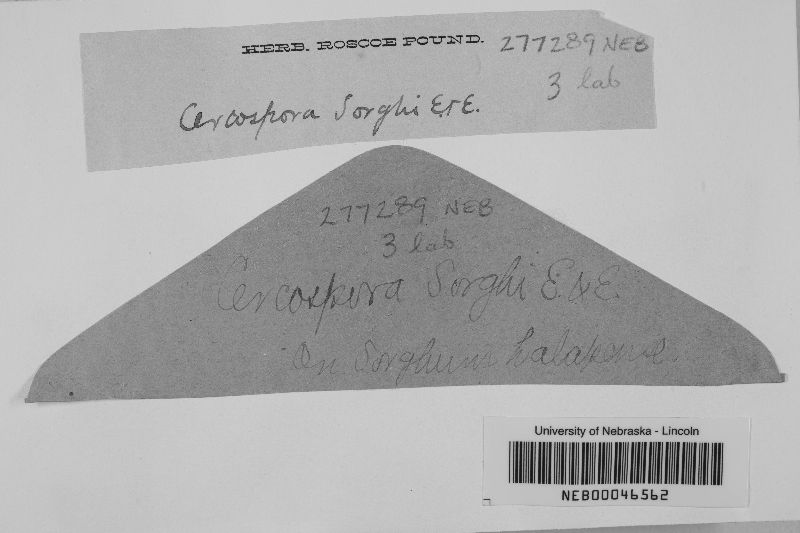 HERB. ROSCOE POUND. 277289 NEB
3 lab
Cercospora Sorghi E&E.
277289 NEB
3 lab
Cercospora Sorghi E&E.
On Sorghum halapense.
University of Nebraska - Lincoln
NEB00046562